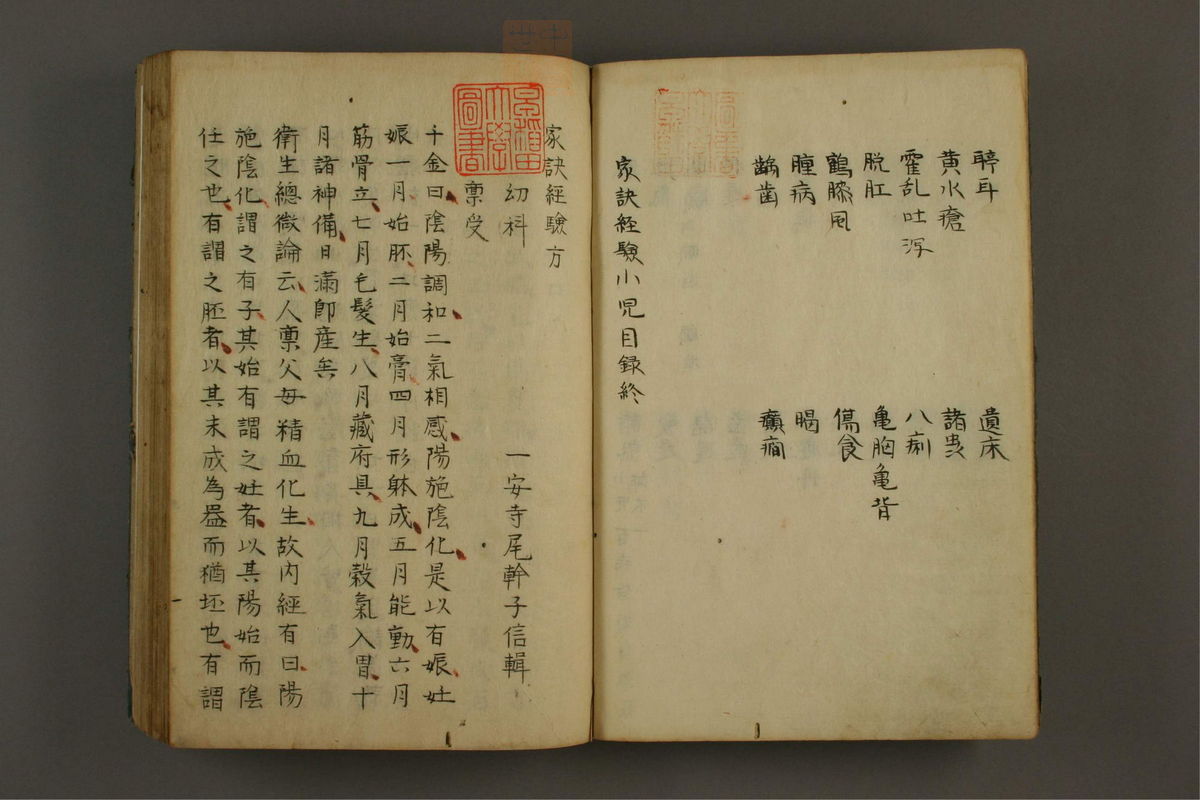 聤耳　遺床
黄水瘡　諸虫
霍乱吐瀉　八痢
脱肛　亀胸亀背
鶴膝風　傷食
腫病
齲歯　癲癇
家訣経験小児目録終
家訣経験方
幼科　一安寺尾幹子信輯
稟受
千金曰陰陽調和二氣相感陽施陰化是以有娠妊
娠一月始胚二月始膏四月形躰成五月能動六月
筋骨立七月毛髪生八月藏府具九月穀氣入胃十
月諸神備日滿卽産矣
衛生總微論云人稟父母精血化生故内經有曰陽
施陰化謂之有子其始有謂之妊者以其陽始而陰
任之也有謂之胚者以其未成為噐而猶坯也有謂